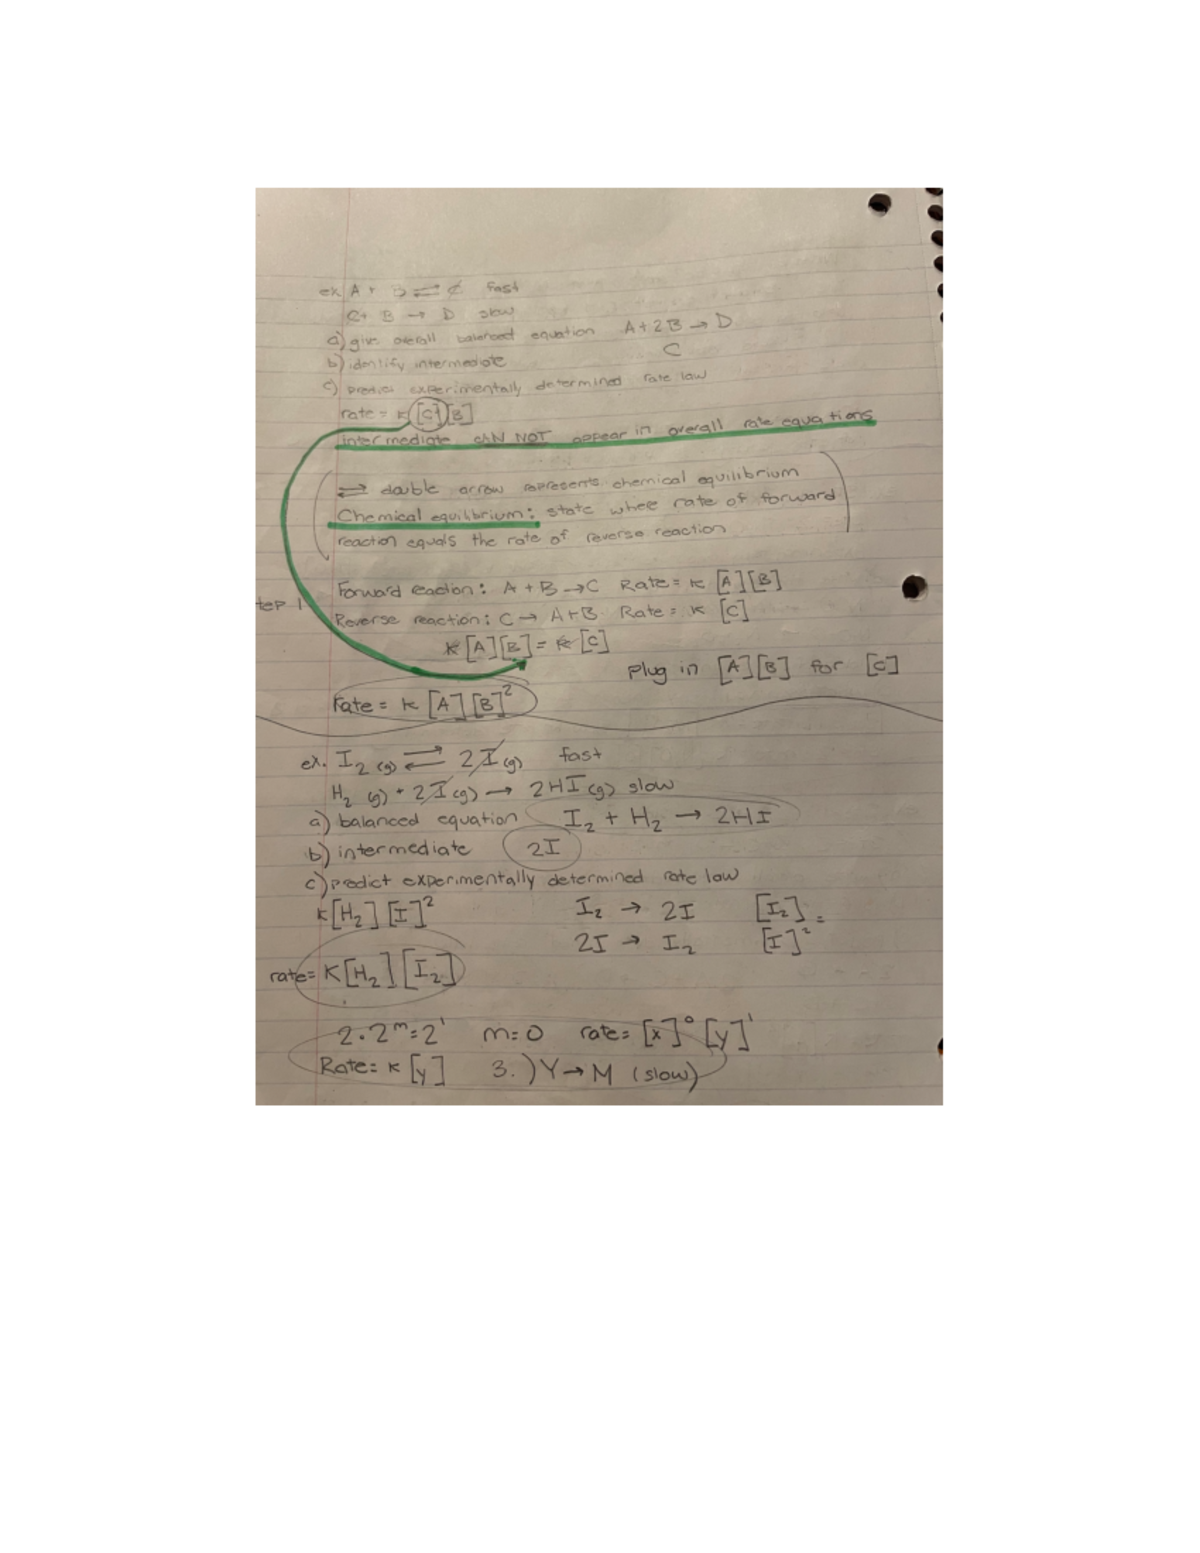 ex A + B ⇌ C fast
C + B → D slow
a) give overall balanced equation A + 2B → D
b) identify intermediate C
c) predict experimentally determined rate law
rate = k [C] [B]
intermediate CAN NOT appear in overall rate equations
⇌ double arrow represents chemical equilibrium
Chemical equilibrium: state where rate of forward
reaction equals the rate of reverse reaction
Forward reaction: A + B → C Rate = k [A][B]
tep 1
Reverse reaction: C → A+B Rate = k [C]
k [A][B] = k [C]
Plug in [A][B] for [C]
rate = k [A][B]²
ex. I₂ (g) ⇌ 2I (g) fast
H₂ (g) + 2I (g) → 2HI (g) slow
a) balanced equation I₂ + H₂ → 2HI
b) intermediate 2I
c) predict experimentally determined rate law
k[H₂][I]² I₂ → 2I [I₂] =
2I → I₂ [I]²
rate = k[H₂][I₂]
2·2ᵐ=2¹ m=0 rate= [x]⁰ [y]¹
Rate = k [y] 3.) Y → M (slow)